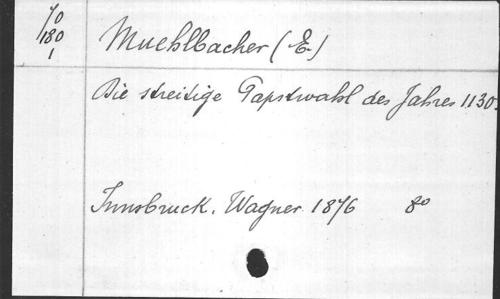 70
180
1
Muehlbacher (E.)
Die streitige Papstwahl des Jahres 1130.
Innsbruck. Wagner 1876 8º